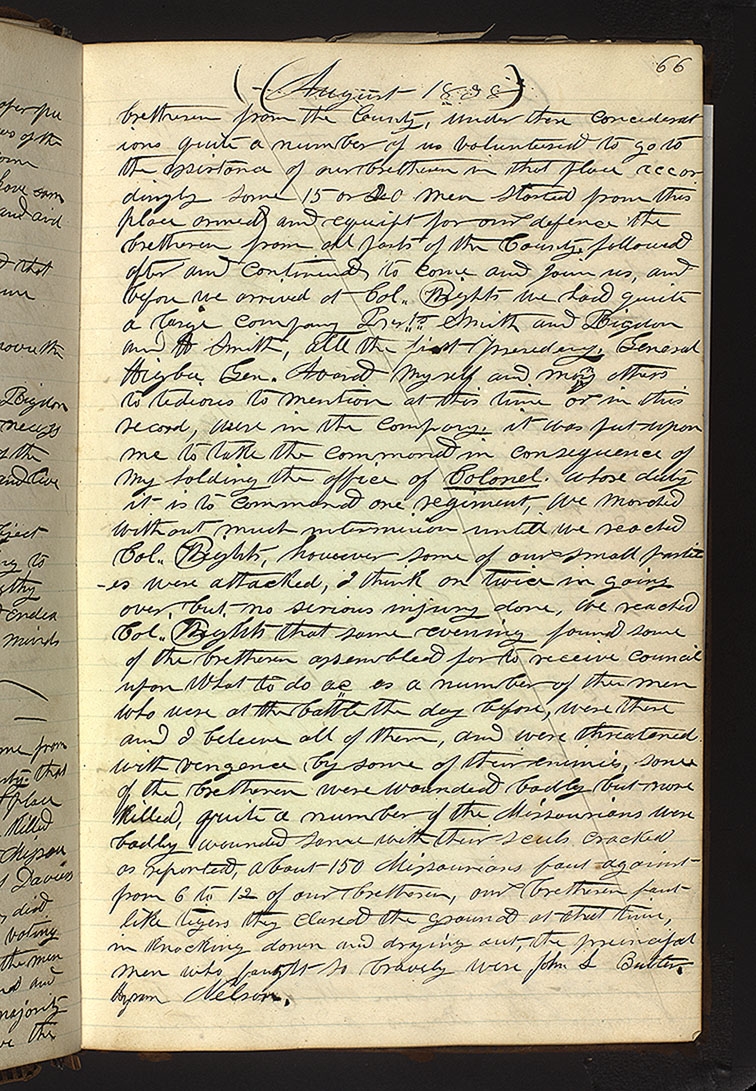 66
August 1838
bretheren from the County, under these considerat
ions quite a number of us volunteered to go to
the assistance of our bretheren in that place accor
dingly some 15 or 20 men started from this
place armed and equipt for our defence the
bretheren from all parts of the County, followed
after and continued to come and join us, and
before we arrived at Col. Wights we had quite
a large company Presdts Smith and Rigdon
and H Smith, all the first Presidency, General
Higbee, Gen. Avard myself and many others
to tedious to mention at this time or in this
record, were in the company, it was put upon
me to take the command in consequence of
my holding the office of Colonel. whose duty
it is to command one regiment, We marched
without much intermission untill we reached
Col. Wights, however some of our small parti
-es were attacked, I think on twice in going
over but no serious injury done, We reached
Col. Wights that same evening found some
of the bretheren assembled for to receive council
upon what to do &c as a number of the men
who were at the battle the day before, were there
and I beleive all of them, and were threatened
with vengence by some of their enimies, some
of the bretheren were wounded badly but none
killed, quite a number of the Missourians were
badly wounded some with their sculs cracked
as reported, about 150 Missourians faut against
from 6 to 12 of our bretheren, our bretheren faut
like tigers they cleared the ground at that time,
in knocking down and draging out, the principal
men who faught so bravely were John L Butler,
Hyram Nelson.
ofer pu
ws of the
have som
and and
d that
Rigdon
necess
of the
and live
ject
ry to
gthy
endea
minds
me from
that
place
killed
Missou
Daviess
did
voting
the men
and
majority
the